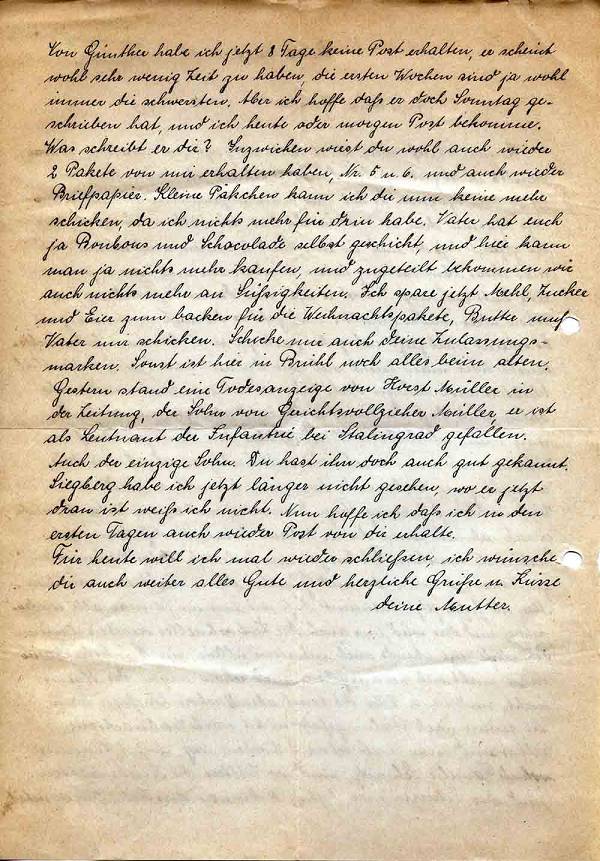 Von Günther habe ich jetzt 8 Tage keine Post erhalten, er scheint
wohl sehr wenig Zeit zu haben, die ersten Wochen sind ja wohl
immer die schwersten. Aber ich hoffe daß er doch Sonntag ge-
schrieben hat, und ich heute oder morgen Post bekomme.
Was schreibt er dir? Inzwischen wirst du wohl auch wieder
2 Pakete von mir erhalten haben, Nr. 5 u. 6. und auch wieder
Briefpapier. Kleine Päkchen kann ich dir nun keine mehr
schicken, da ich nichts mehr für drin habe. Vater hat euch
ja Bonbons und Schocolade selbst geschickt, und hier kann
man ja nichts mehr kaufen, und zugeteilt bekommen wir
auch nichts mehr an Süßigkeiten. Ich spare jetzt Mehl, Zucker
und Eier zum backen für die Weihnachtspakete, Butter muß
Vater mir schicken. Schicke mir auch deine Zulassungs-
marken. Sonst ist hier in Brühl noch alles beim alten.
Gestern stand eine Todesanzeige von Horst Müller in
der Zeitung, der Sohn von Gerichtsvollzieher Müller, er ist
als Leutnant der Infantrie bei Stalingrad gefallen.
Auch der einzige Sohn. Du hast ihn doch auch gut gekannt.
Siegberg habe ich jetzt länger nicht gesehen, wo er jetzt
dran ist weiß ich nicht. Nun hoffe ich daß ich in den
ersten Tagen auch wieder Post von dir erhalte.
Für heute will ich mal wieder schließen, ich wünsche
dir auch weiter alles Gute und herzliche Grüße u. Küsse
deine Mutter.